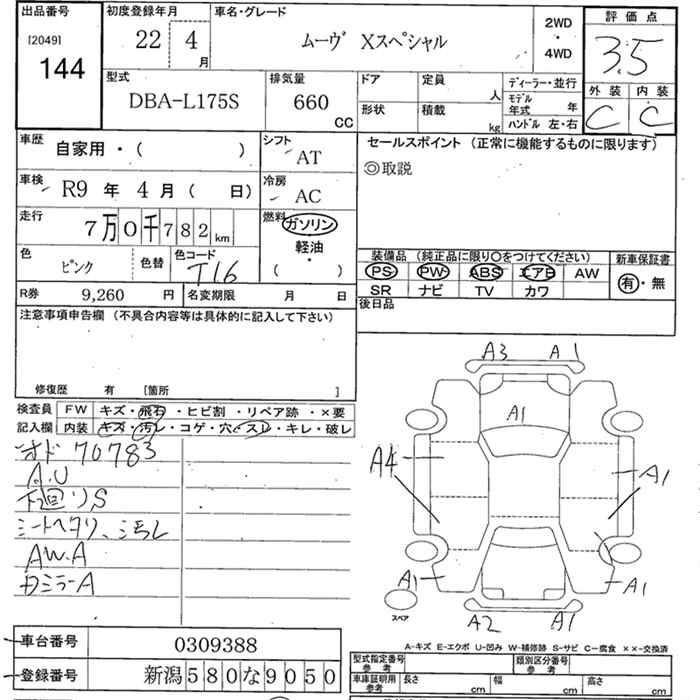 出品番号
[2049]
144
初度登録年月
22 4 月
車名・グレード
ムーヴ Xスペシャル
2WD
・
4WD
評価点
3.5
外装 内装
C C
型式
DBA-L175S
排気量
660 CC
ドア 定員 人
形状 積載 kg
ディーラー・並行
モデル年式 年
ハンドル 左・右
車歴
自家用・( )
シフト
AT
セールスポイント (正常に機能するものに限ります)
◎取説
車検
R9 年 4 月 ( 日)
冷房
AC
走行
7万0千782 km
燃料
ガソリン
軽油
・
( )
色
ピンク
色替
色コード
T16
装備品 (純正品に限り〇をつけてください)
PS PW ABS エアB AW
SR ナビ TV カワ
新車保証書
有・無
R券 9,260 円
名変期限 月 日
後日品
注意事項申告欄 (不具合内容等は具体的に記入して下さい)
修復歴 有 [箇所 ]
検査員記入欄
FW キズ・飛石・ヒビ割・リペア跡・×要
内装 キズ・汚レ・コゲ・穴・スレ・キレ・破レ
オド 70783
A.U
下廻りS
シートヘタリ、汚レ
AW.A
Dミラ-A
A3 A1
A1
A4 A1
A1 A1
スペア
A2 A1
A-キズ E-エクボ U-凹み W-補修跡 S-サビ C-腐食 ××-交換済
車台番号 0309388
登録番号 新潟580な9050
型式指定番号 参考
類別区分番号 参考
車庫証明用 参考
長さ cm 幅 cm 高さ cm